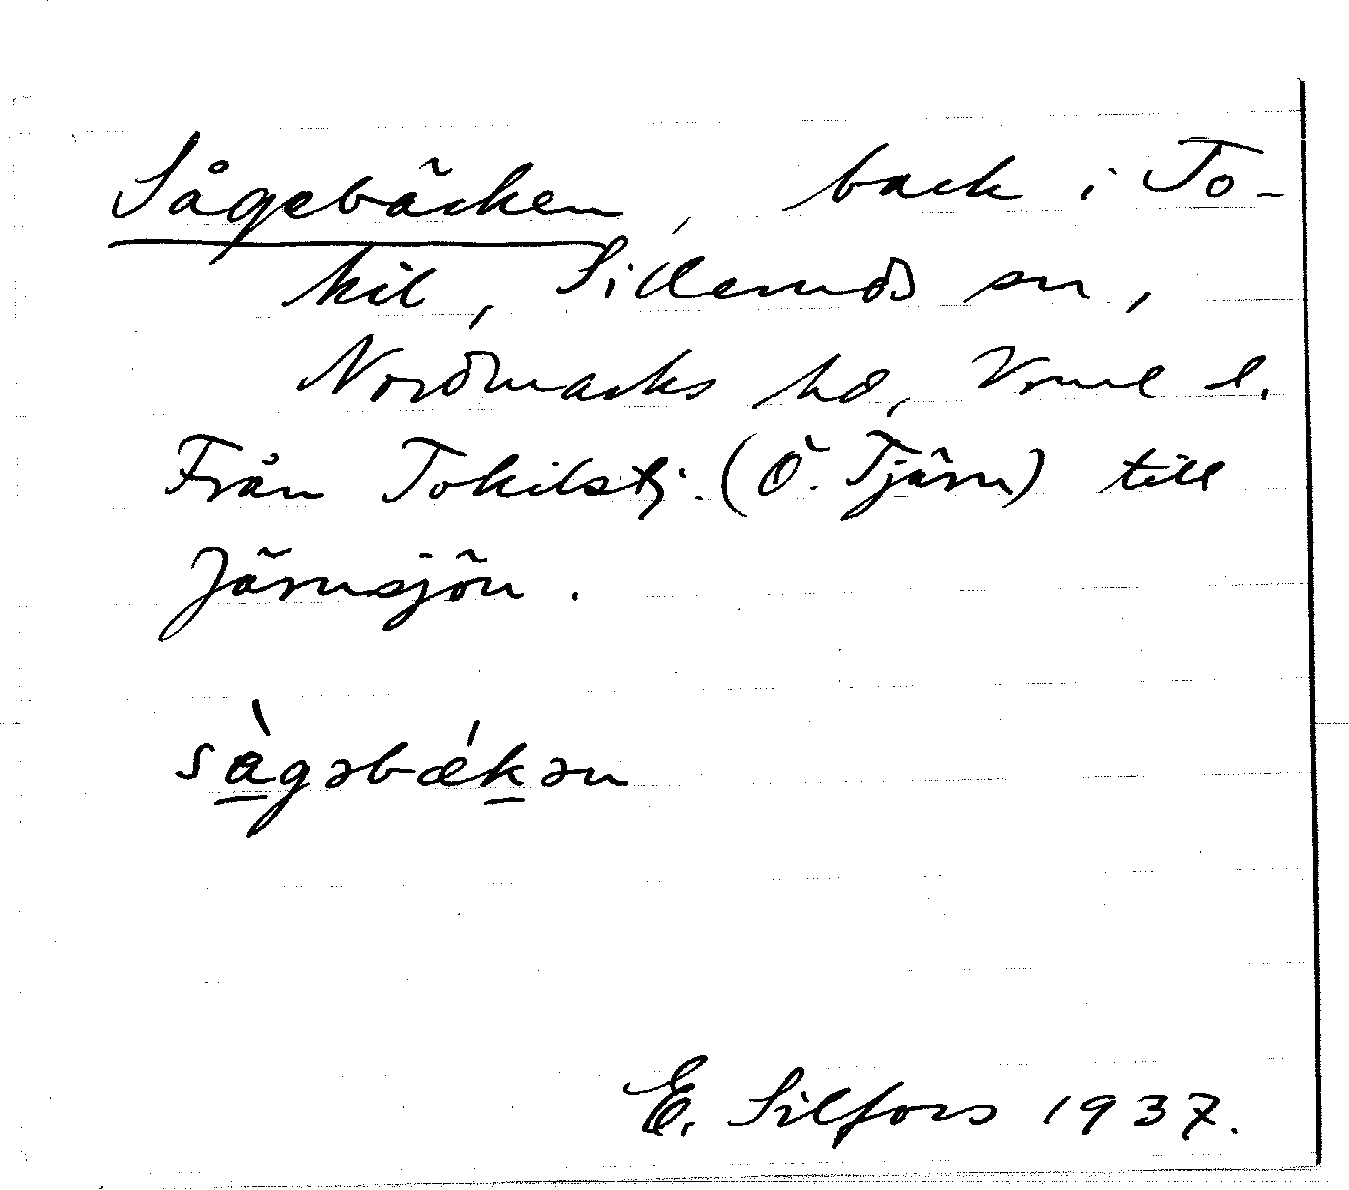 Sågebäcken, back i To-
kil, Silleruds sn,
Nordmarks hd, Vrml l.
Från Tokilstj. (Ö. Tjärn) till
Järnsjön.
sàgəbǽkən
E. Silfors 1937.